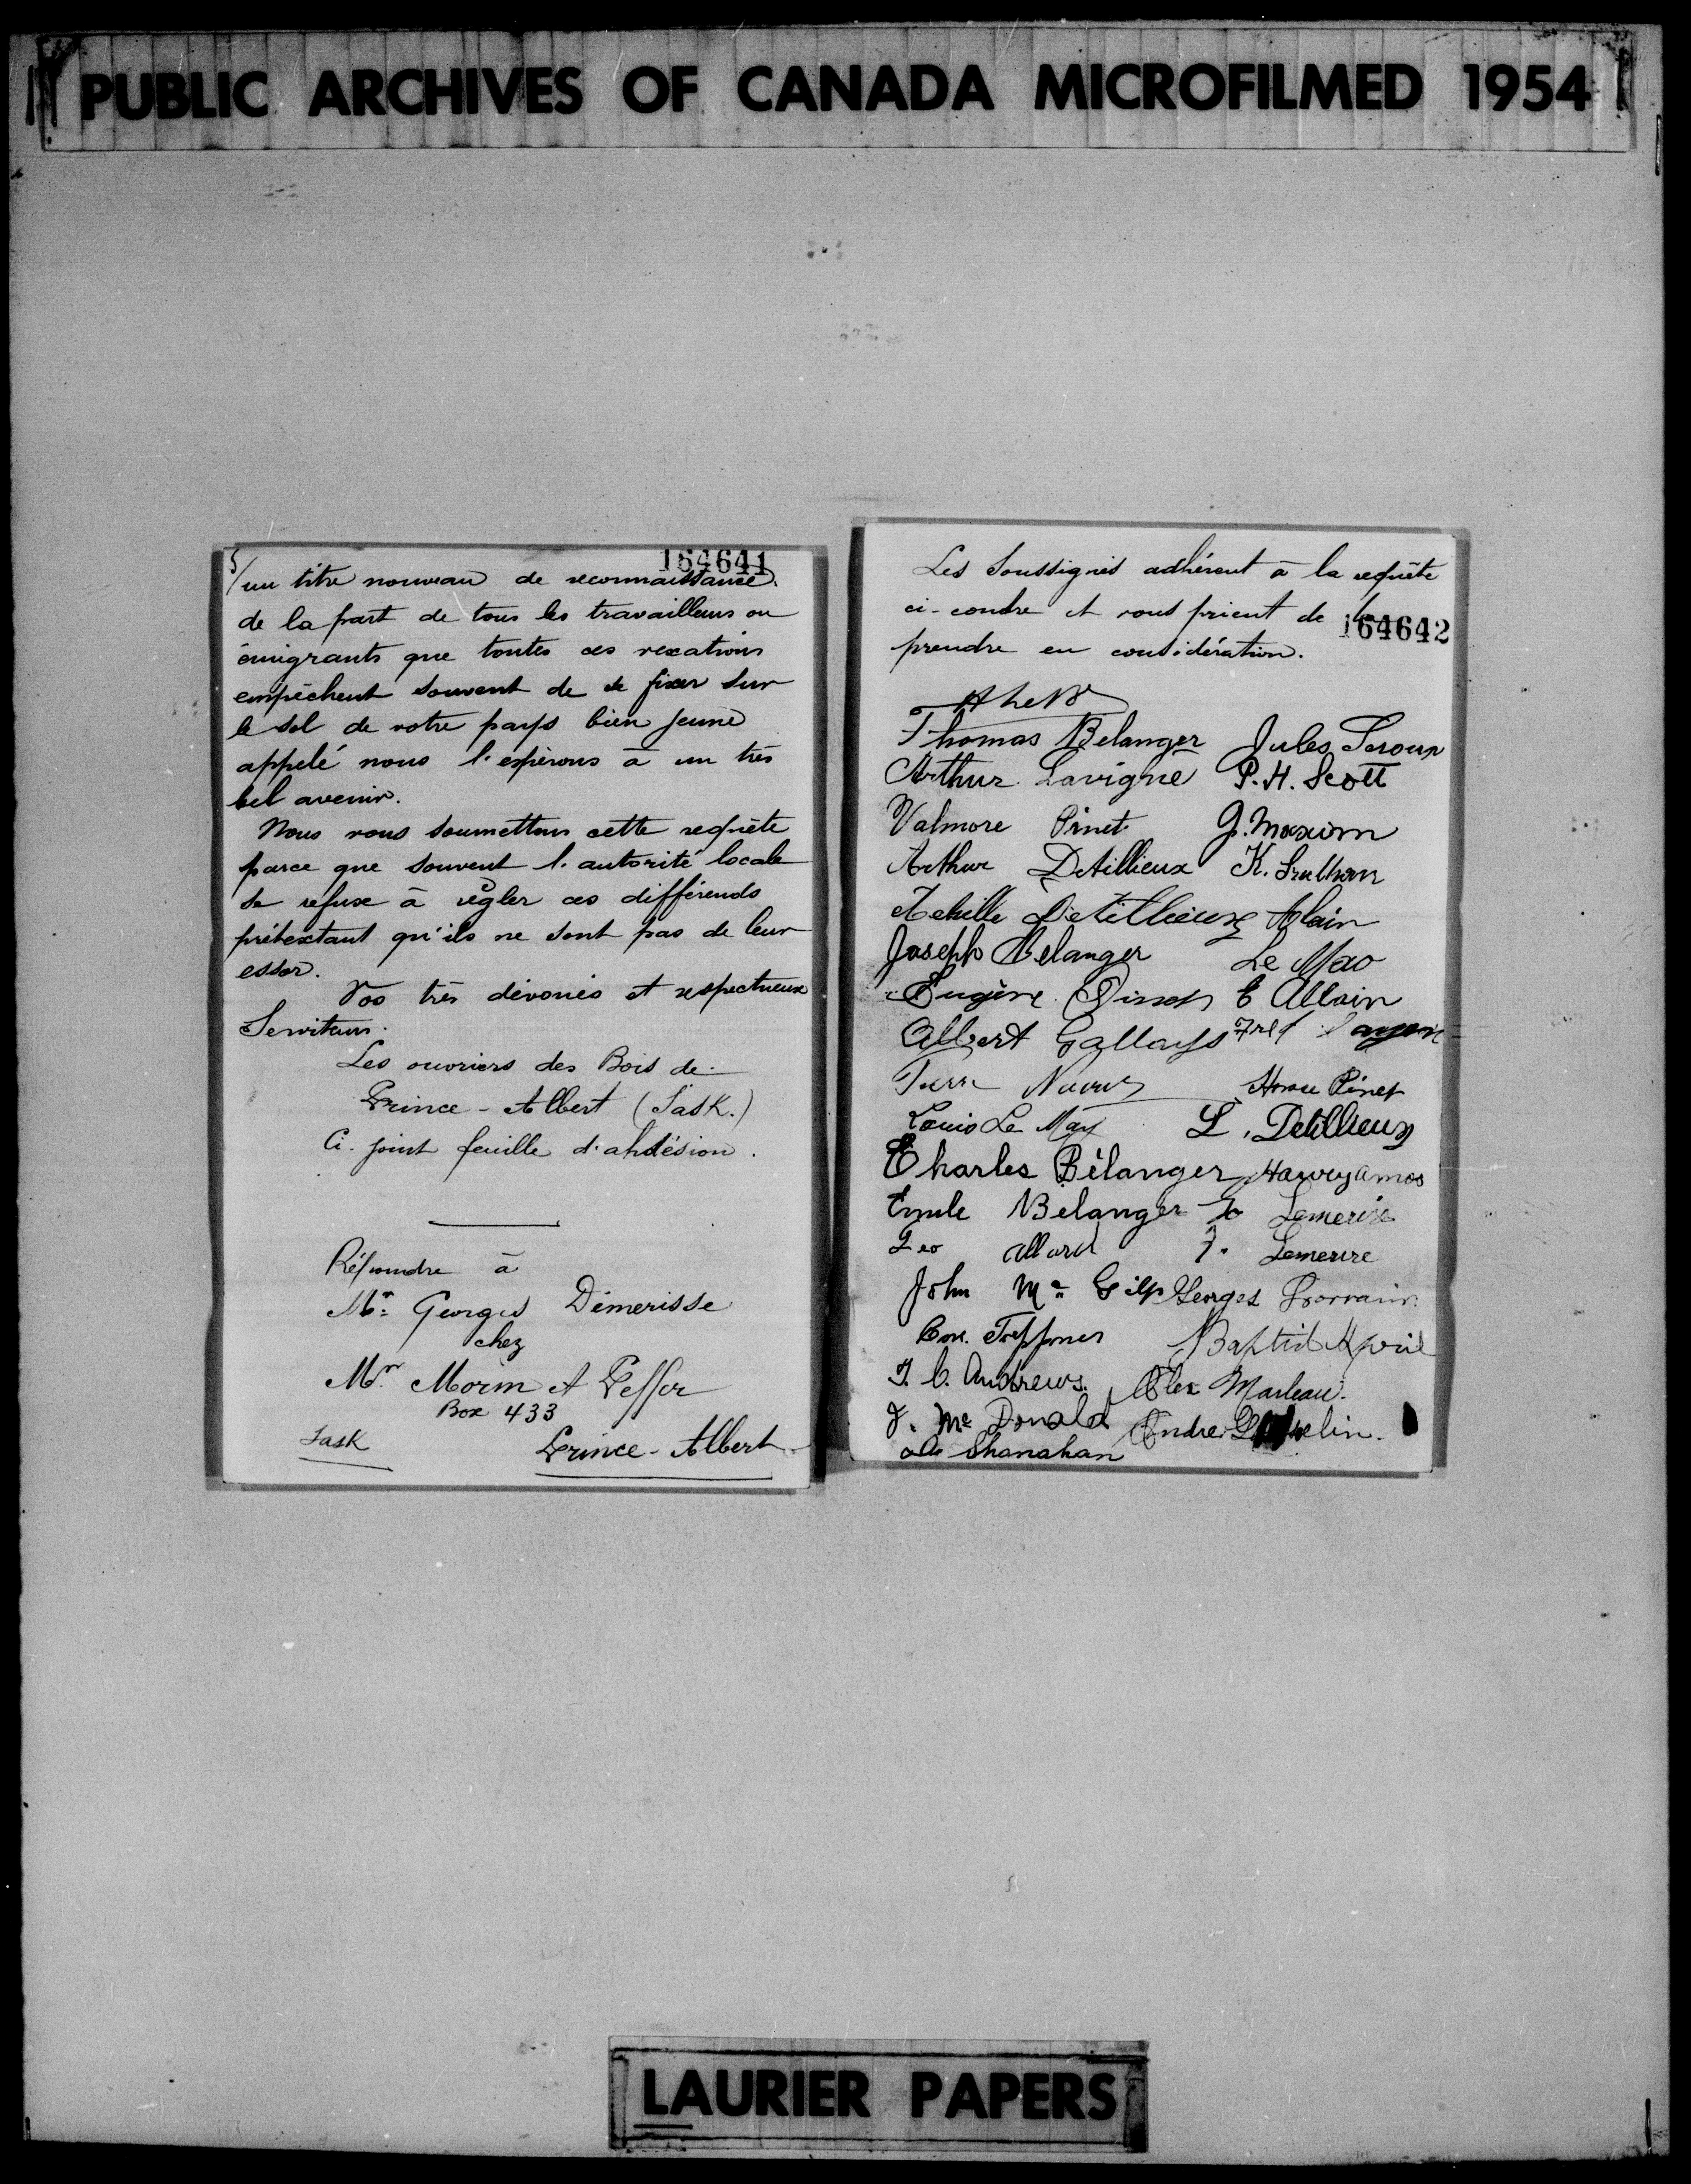 PUBLIC ARCHIVES OF CANADA MICROFILMED 1954
164641
5/ un titre nouveau de reconnaissance
de la part de tous les travailleurs ou
émigrants que toutes ces vexations
empêchent souvent de se fixer sur
le sol de votre pays bien jeune
appelé nous l'espérons à un très
bel avenir.
Nous vous soumettons cette requête
parce que souvent l'autorité locale
se refuse à règler ces différends
prétextant qu'ils ne sont pas de leur
essor.
Vos très dévoués et respectueux
Serviteurs.
Les ouvriers des Bois de
Prince-Albert (Sask.)
Ci-joint feuille d'ahdésion.
Répondre à
Mr Georges Démerisse
chez
Mr Morin et
Box 433
Sask Prince-Albert
Les Soussignés adhérent à la requête
ci-contre et vous prient de la
164642
prendre en considération.
Thomas Belanger Jules Leroux
Arthur Lavigne P. H. Scott
Valmore Pinet J. Maxim
Arthur Detillieux K.
Achille Detillieux Alain
Joseph Belanger Le Mao
Eugène E Allain
Albert Gallays Fred
Pinet
Louis Le May L. Detillieux
Charles Bélanger Harvey Amos
Emile Belanger Jo Lemerise
Leo Allard J. Lemerise
John Mc Georges Lorrain
Baptist
J. C. Andrews. Alex Marleau.
J. Mc Donald Andre
Shanahan
LAURIER PAPERS